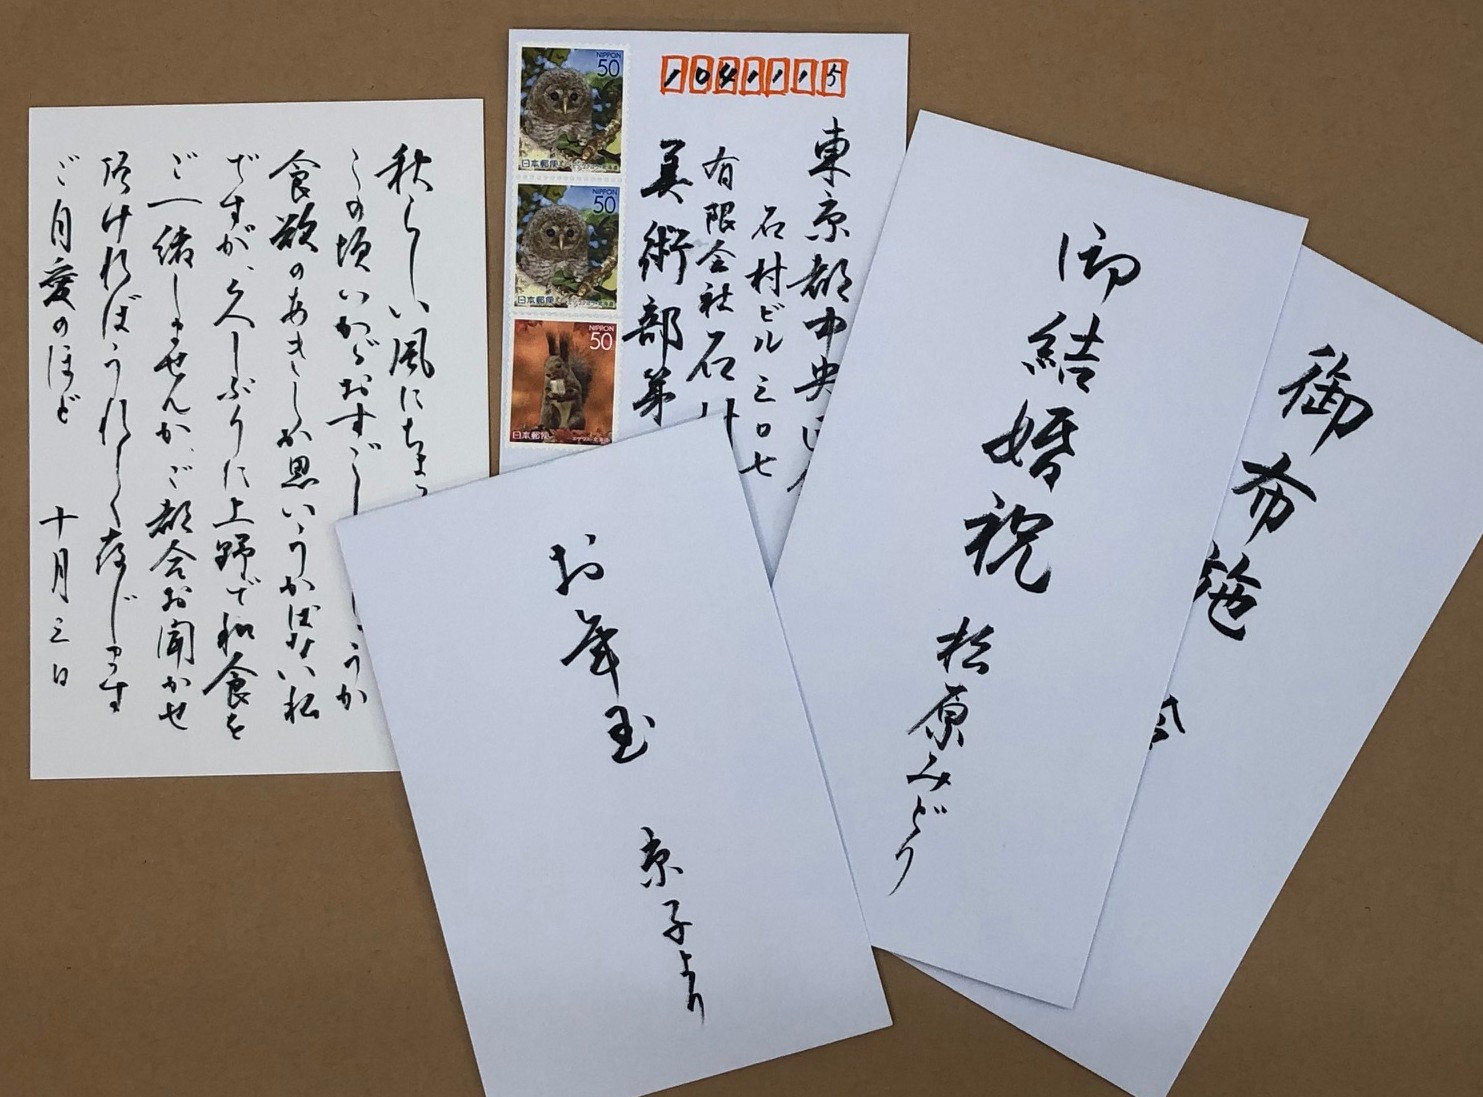 秋らしい風に
この頃いかがおすごし
食欲のあきしか思いうかばない私
ですが、久しぶりに上野で和食を
ご一緒しませんか、ご都合お聞かせ
頂ければうれしく存じます
ご自愛のほど 十月三日
NIPPON
50
日本郵便
NIPPON
50
日本郵便
NIPPON
50
日本郵便
1041115
東京都中央
石村ビル三〇七
有限会社石川
美術部第
お年玉
京子より
御結婚祝
松原みどり
御布施